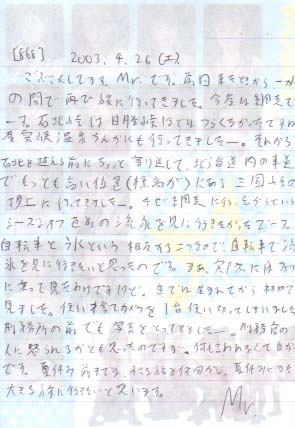 [888] 2003. 4. 26 (土)
ごぶさたしてます。Mr.です。前回来た時から一ヶ月
の間で再び旅に行ってきました。今度は網走で
す。石北峠は日勝峠ほどつらくなかったですね
層雲峡温泉なんかにも行ってきましたー。それから
石北を越える前にちょっと寄り道して、北海道内の車道
でもっとも高い位置(標高が)にある三国峠の
頂上に行ってきましたー。
シーズンオフ直前の流氷を見に行きたかったでーす。
自転車と流氷という相反する二つなので、自転車で流
氷を見に行きたいと思ったのです。まあ、実際には船
に乗って見たわけですけど。生まれてから初めて
見ました。使い捨てカメラを1台使い切ってしまいました
刑務所の前でも写真をとってきましたー。刑務官の
人に怒られるかとも思ったのですが、何も言われなくて
です。夏休み
大きな旅に行きたいと思います。
Mr.